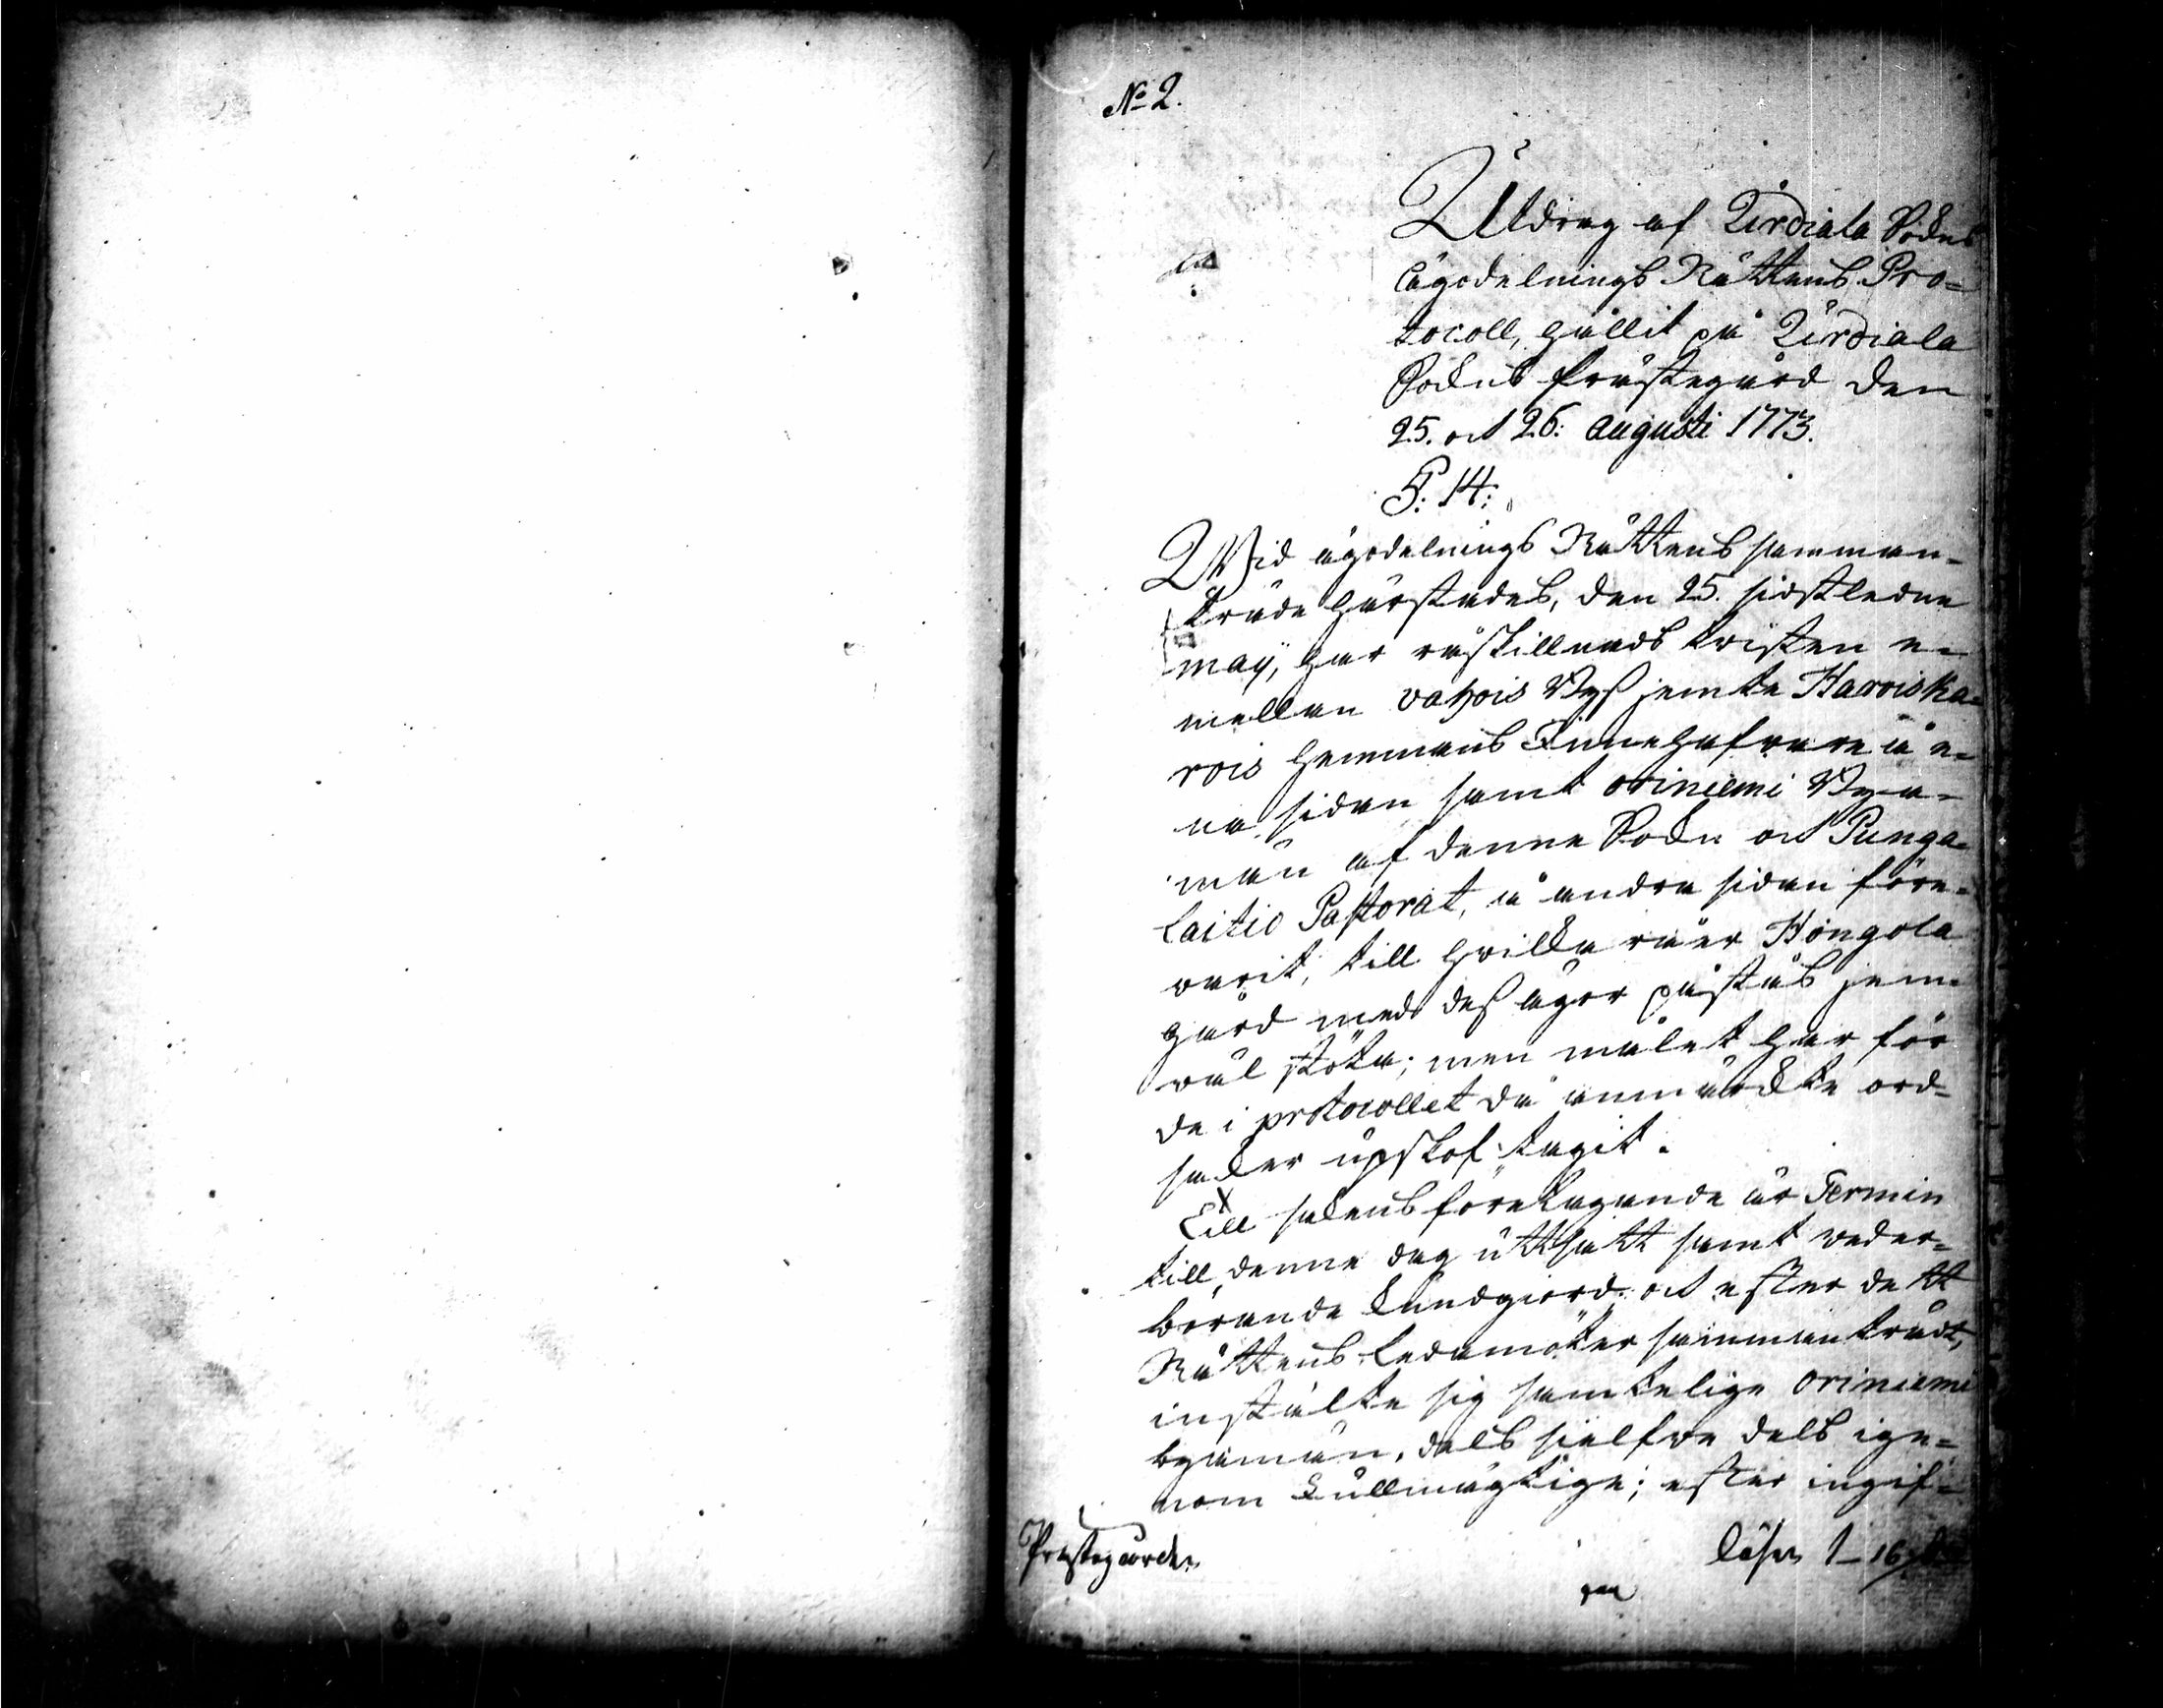 No 2.
Utdrag af Urdiala Sokns
Ägodelnings Rättens Pro-
tocoll, hållit på Urdiala
Sokns Prästegård den
25. och 26: Augusti 1773.
§. 14:
Wid ägodelnings Rättens samman-
träde härstädes, den 25. sidstledne
maÿ, har råskillnads twisten e-
mellan vahois By jemte Harviska-
rois hemmans Innehafware å e-
na sidan samt oriniemi Bya-
män af denna Sokn och Punga-
laitio Pastorat, å andra sidan före-
warit, till hwilka råer Hongola
gård med dess ägor påstås jem-
wäl stöta; men målet har för
de i protocollet då anmärckte ord-
saker upskof tagit.
Till sakens företagande är Termin
till denne dag uttsatt samt weder-
börande kundgiord; och efter dett
Rättens Ledamöter sammanträdt,
instälte sig samtelige oriniemi
byamän, dels sielfwe dels ige-
nom Fullmägtige; efter ingif-
Prestegården
lösen 1_16